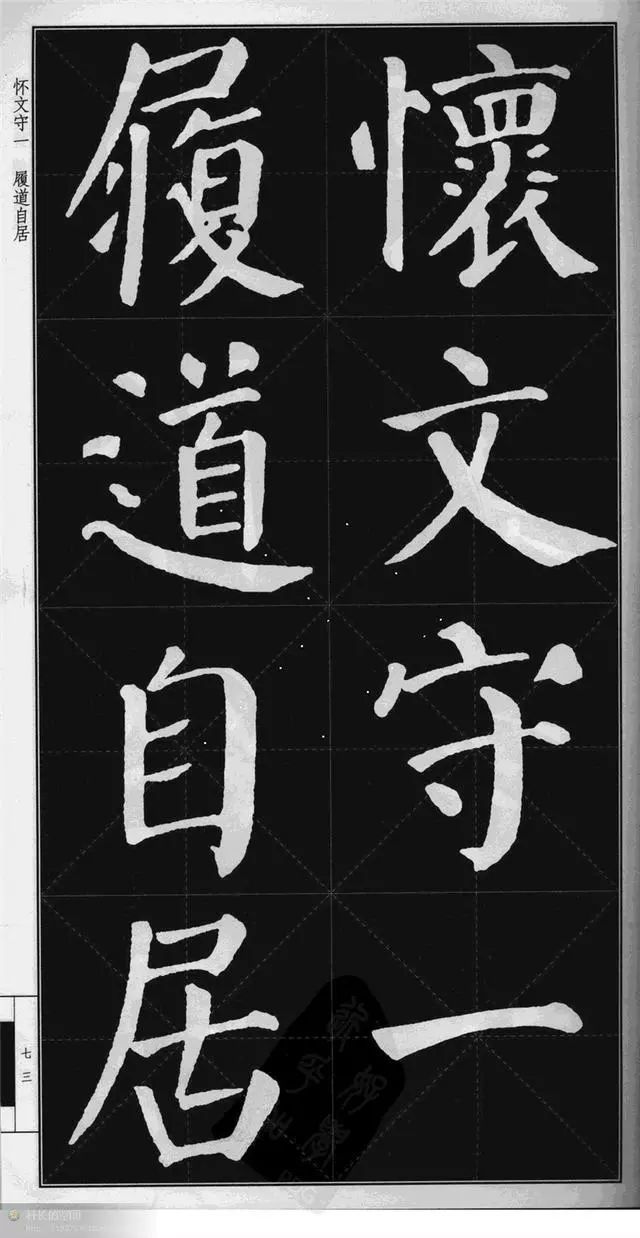 懷文守一
履道自居
怀文守一 履道自居
七三